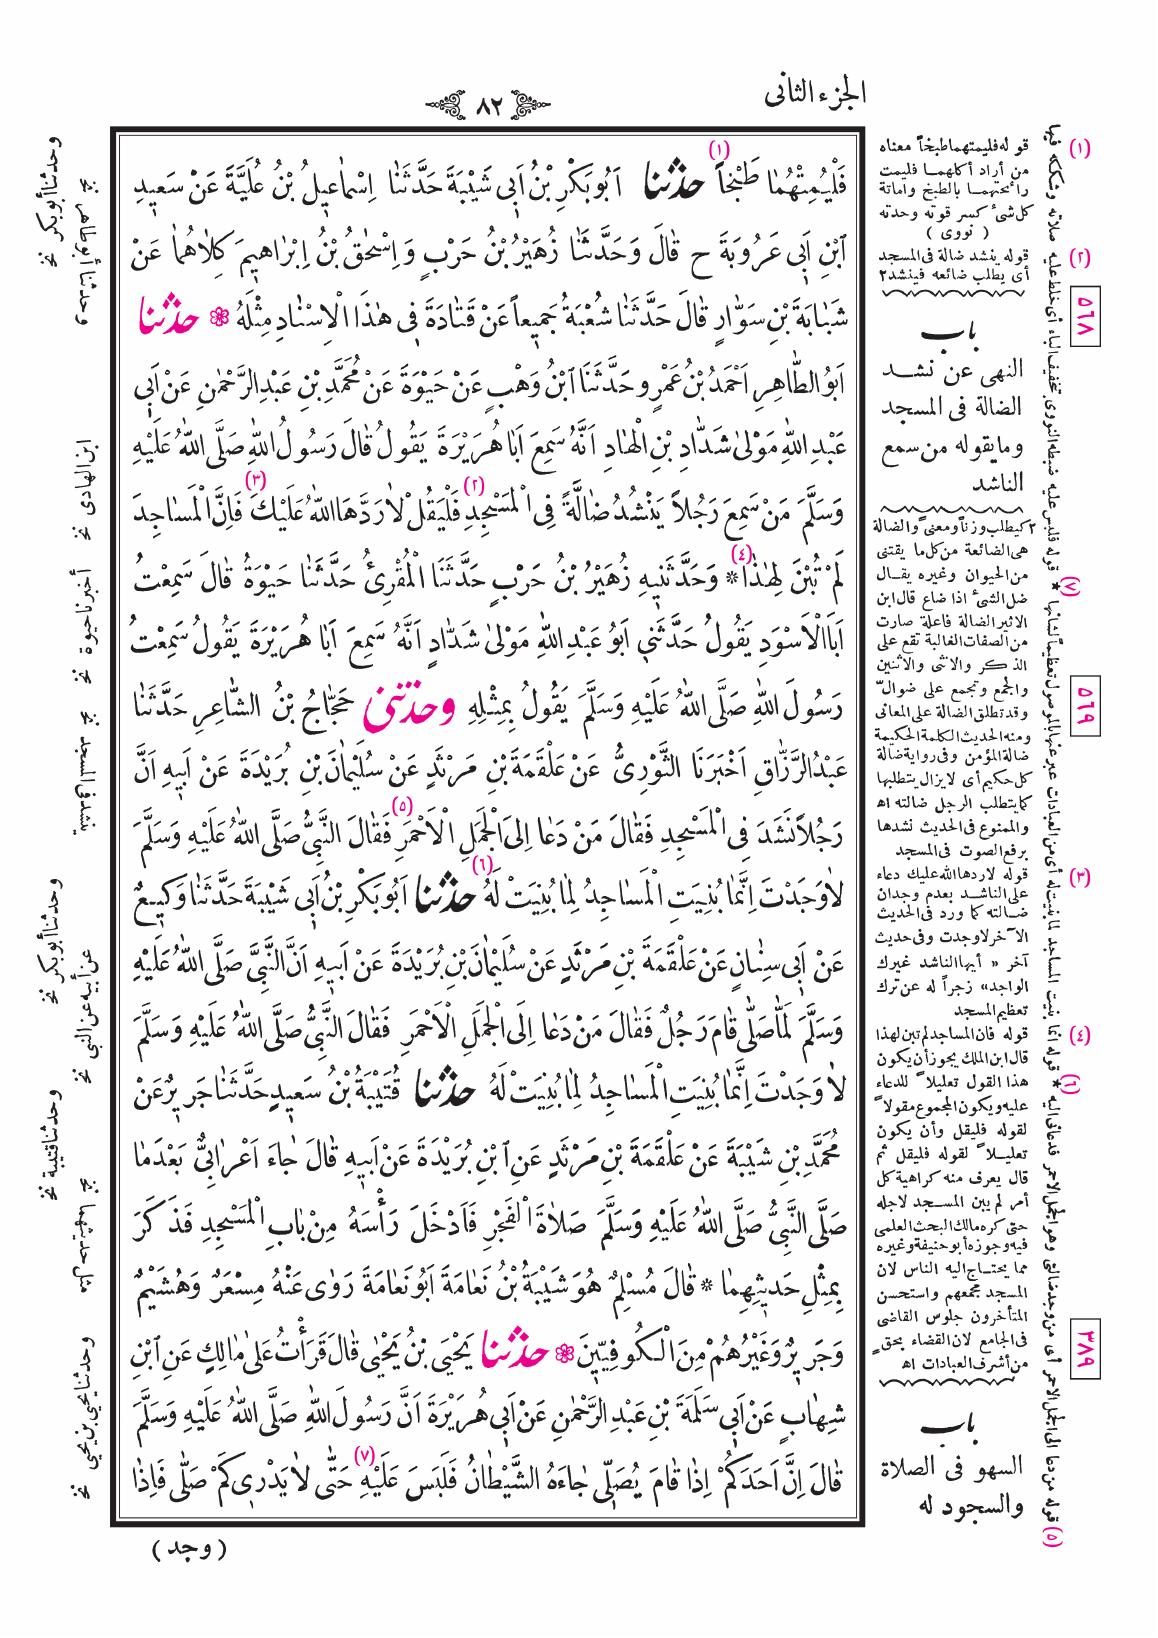 الجزء الثانى
٨٢
فَلْيُمِتْهُمَا طَبْخاً (١) حَدَّثَنَا اَبُوبَكْرِ بْنُ اَبِى شَيْبَةَ حَدَّثَنَا اِسْمَاعِيلُ بْنُ عُلَيَّةَ عَنْ سَعِيدِ
ابْنِ اَبِى عَرُوبَةَ ح قَالَ وَحَدَّثَنَا زُهَيْرُ بْنُ حَرْبٍ وَاِسْحٰقُ بْنُ اِبْرَاهِيمَ كِلَاهُمَا عَنْ
شَبَابَةَ بْنِ سَوَّارٍ قَالَ حَدَّثَنَا شُعْبَةُ جَمِيعاً عَنْ قَتَادَةَ فِى هٰذَا الْاِسْنَادِ مِثْلَهُ ۞ حَدَّثَنَا
اَبُو الطَّاهِرِ اَحْمَدُ بْنُ عَمْرٍو حَدَّثَنَا ابْنُ وَهْبٍ عَنْ حَيْوَةَ عَنْ مُحَمَّدِ بْنِ عَبْدِ الرَّحْمٰنِ عَنْ اَبِى
عَبْدِ اللّٰهِ مَوْلىٰ شَدَّادِ بْنِ الْهَادِ اَنَّهُ سَمِعَ اَبَا هُرَيْرَةَ يَقُولُ قَالَ رَسُولُ اللّٰهِ صَلَّى اللّٰهُ عَلَيْهِ
وَسَلَّمَ مَنْ سَمِعَ رَجُلاً يَنْشُدُ ضَالَّةً فِى الْمَسْجِدِ (٢) فَلْيَقُلْ لَا رَدَّهَا اللّٰهُ عَلَيْكَ (٣) فَاِنَّ الْمَسَاجِدَ
لَمْ تُبْنَ لِهٰذَا (٤) * وَحَدَّثَنِيهِ زُهَيْرُ بْنُ حَرْبٍ حَدَّثَنَا الْمُقْرِئُ حَدَّثَنَا حَيْوَةُ قَالَ سَمِعْتُ
اَبَا الْاَسْوَدِ يَقُولُ حَدَّثَنِى اَبُو عَبْدِ اللّٰهِ مَوْلىٰ شَدَّادٍ اَنَّهُ سَمِعَ اَبَا هُرَيْرَةَ يَقُولُ سَمِعْتُ
رَسُولَ اللّٰهِ صَلَّى اللّٰهُ عَلَيْهِ وَسَلَّمَ يَقُولُ بِمِثْلِهِ وَحَدَّثَنِى حَجَّاجُ بْنُ الشَّاعِرِ حَدَّثَنَا
عَبْدُ الرَّزَّاقِ اَخْبَرَنَا الثَّوْرِىُّ عَنْ عَلْقَمَةَ بْنِ مَرْثَدٍ عَنْ سُلَيْمَانَ بْنِ بُرَيْدَةَ عَنْ اَبِيهِ اَنَّ
رَجُلاً نَشَدَ فِى الْمَسْجِدِ فَقَالَ مَنْ دَعَا اِلَى الْجَمَلِ الْاَحْمَرِ (٥) فَقَالَ النَّبِىُّ صَلَّى اللّٰهُ عَلَيْهِ وَسَلَّمَ
لَا وَجَدْتَ اِنَّمَا بُنِيَتِ الْمَسَاجِدُ لِمَا بُنِيَتْ لَهُ (٦) حَدَّثَنَا اَبُوبَكْرِ بْنُ اَبِى شَيْبَةَ حَدَّثَنَا وَكِيعٌ
عَنْ اَبِى سِنَانٍ عَنْ عَلْقَمَةَ بْنِ مَرْثَدٍ عَنْ سُلَيْمَانَ بْنِ بُرَيْدَةَ عَنْ اَبِيهِ اَنَّ النَّبِىَّ صَلَّى اللّٰهُ عَلَيْهِ
وَسَلَّمَ لَمَّا صَلَّى قَامَ رَجُلٌ فَقَالَ مَنْ دَعَا اِلَى الْجَمَلِ الْاَحْمَرِ فَقَالَ النَّبِىُّ صَلَّى اللّٰهُ عَلَيْهِ وَسَلَّمَ
لَا وَجَدْتَ اِنَّمَا بُنِيَتِ الْمَسَاجِدُ لِمَا بُنِيَتْ لَهُ حَدَّثَنَا قُتَيْبَةُ بْنُ سَعِيدٍ حَدَّثَنَا جَرِيرٌ عَنْ
مُحَمَّدِ بْنِ شَيْبَةَ عَنْ عَلْقَمَةَ بْنِ مَرْثَدٍ عَنِ ابْنِ بُرَيْدَةَ عَنْ اَبِيهِ قَالَ جَاءَ اَعْرَابِىٌّ بَعْدَمَا
صَلَّى النَّبِىُّ صَلَّى اللّٰهُ عَلَيْهِ وَسَلَّمَ صَلَاةَ الْفَجْرِ فَاَدْخَلَ رَأْسَهُ مِنْ بَابِ الْمَسْجِدِ فَذَكَرَ
بِمِثْلِ حَدِيثِهِمَا * قَالَ مُسْلِمٌ هُوَ شَيْبَةُ بْنُ نَعَامَةَ اَبُو نَعَامَةَ رَوٰى عَنْهُ مِسْعَرٌ وَهُشَيْمٌ
وَجَرِيرٌ وَغَيْرُهُمْ مِنَ الْكُوفِيِّينَ ۞ حَدَّثَنَا يَحْيَى بْنُ يَحْيٰى قَالَ قَرَأْتُ عَلىٰ مَالِكٍ عَنِ ابْنِ
شِهَابٍ عَنْ اَبِى سَلَمَةَ بْنِ عَبْدِ الرَّحْمٰنِ عَنْ اَبِى هُرَيْرَةَ اَنَّ رَسُولَ اللّٰهِ صَلَّى اللّٰهُ عَلَيْهِ وَسَلَّمَ
قَالَ اِنَّ اَحَدَكُمْ اِذَا قَامَ يُصَلِّى جَاءَهُ الشَّيْطَانُ فَلَبَسَ عَلَيْهِ (٧) حَتّٰى لَا يَدْرِىَ كَمْ صَلَّى فَاِذَا
( وجد )
(١) قوله فليمتهما طبخاً معناه
من أراد أكلهما فليمت
رائحتهما بالطبخ واماتة
كل شئ كسر قوته وحدته
( نووى )
(٢) قوله ينشد ضالة فى المسجد
أى يطلب ضائعه فينشد٢
٥٦٨
باب
النهى عن نشد
الضالة فى المسجد
وما يقوله من سمع
الناشد
٢كيطلب وزناً ومعنىً والضالة
هى الضائعة من كل ما يقتنى
من الحيوان وغيره يقال
ضل الشئ اذا ضاع قال ابن
الاثير الضالة فاعلة صارت
من الصفات الغالبة تقع على
الذكر والانثى والاثنين
والجمع وتجمع على ضوالّ
وقد تطلق الضالة على المعانى
ومنه الحديث الكلمة الحكيمة
ضالة المؤمن وفى رواية ضالة
كل حكيم أى لا يزال يتطلبها
كما يتطلب الرجل ضالته اه
والممنوع فى الحديث نشدها
برفع الصوت فى المسجد
٥٦٩
(٣) قوله لاردها الله عليك دعاء
على الناشد بعدم وجدان
ضالته كما ورد فى الحديث
الآخر لا وجدت وفى حديث
آخر « أيها الناشد غيرك
الواجد» زجراً له عن ترك
تعظيم المسجد
(٤) قوله فان المساجد لم تبن لهذا
قال ابن الملك يجوز أن يكون
هذا القول تعليلاً للدعاء
عليه ويكون المجموع مقولاً
لقوله فليقل وأن يكون
تعليلاً لقوله فليقل ثم
قال يعرف منه كراهية كل
أمر لم يبن المسجد لاجله
حتى كره مالك البحث العلمى
فيه وجوزه أبو حنيفة وغيره
مما يحتاج اليه الناس لان
المسجد مجمعهم واستحسن
المتأخرون جلوس القاضى
فى الجامع لان القضاء بحق
من أشرف العبادات اه
٣٨٩
باب
السهو فى الصلاة
والسجود له
(٥) قوله من دعا الى الجمل الاحمر أى من وجد ضالتى وهو الجمل الاحمر فدعانى اليه
(٦) * قوله انما بنيت المساجد لما بنيت له أى من العبادات عبر عنها بالموصول تعظيماً لشأنها
(٧) * قوله فلبس عليه ضبطه النووى بتخفيف الباء أى خلط عليه صلاته وشككه فيها
وحدثنا أبو بكر نخ
وحدثنا أبو طاهر نخ
ابن الهادى نخ
أخبرنا حيوة نخ
ينشد فى المسجد نخ
وحدثنا أبو بكر نخ
عن أبيه عن النبى نخ
وحدثنا قتيبة نخ
مثل حديثهما نخ
وحدثنا يحيى بن يحيى نخ